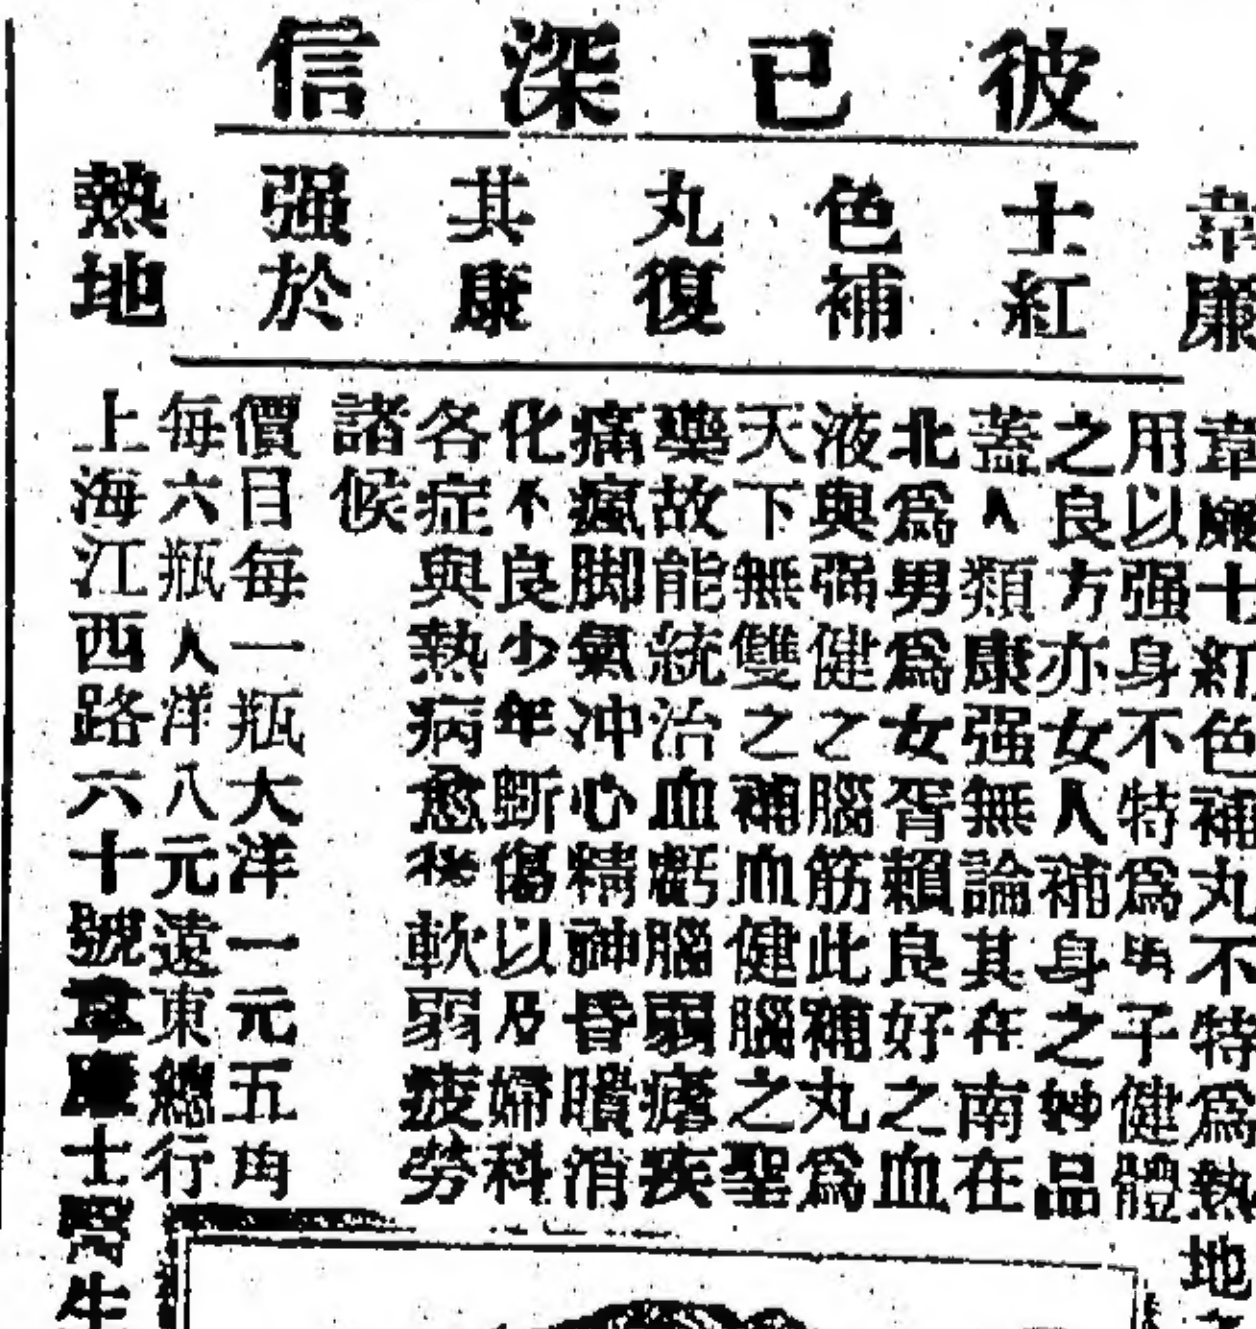 彼已深信
韋廉
士紅
色補
丸復
其康
强於
熱地
韋廉士紅色補丸不特爲熱地
用以强身不特爲男子健體
之良方亦女人補身之妙品
蓋人類康强無論其在南在
北爲男爲女胥賴良好之血
液與强健之腦筋此補丸爲
天下無雙之補血健腦之聖
藥故能統治血虧腦弱瘡疾
痛瘋脚氣冲心精神昏瞶消
化不良少年斲傷以及婦科
各症與熱病愈後軟弱疲勞
諸候
價目每一瓶大洋一元五角
每六瓶大洋八元遠東總行
上海江西路六十號韋廉士醫生